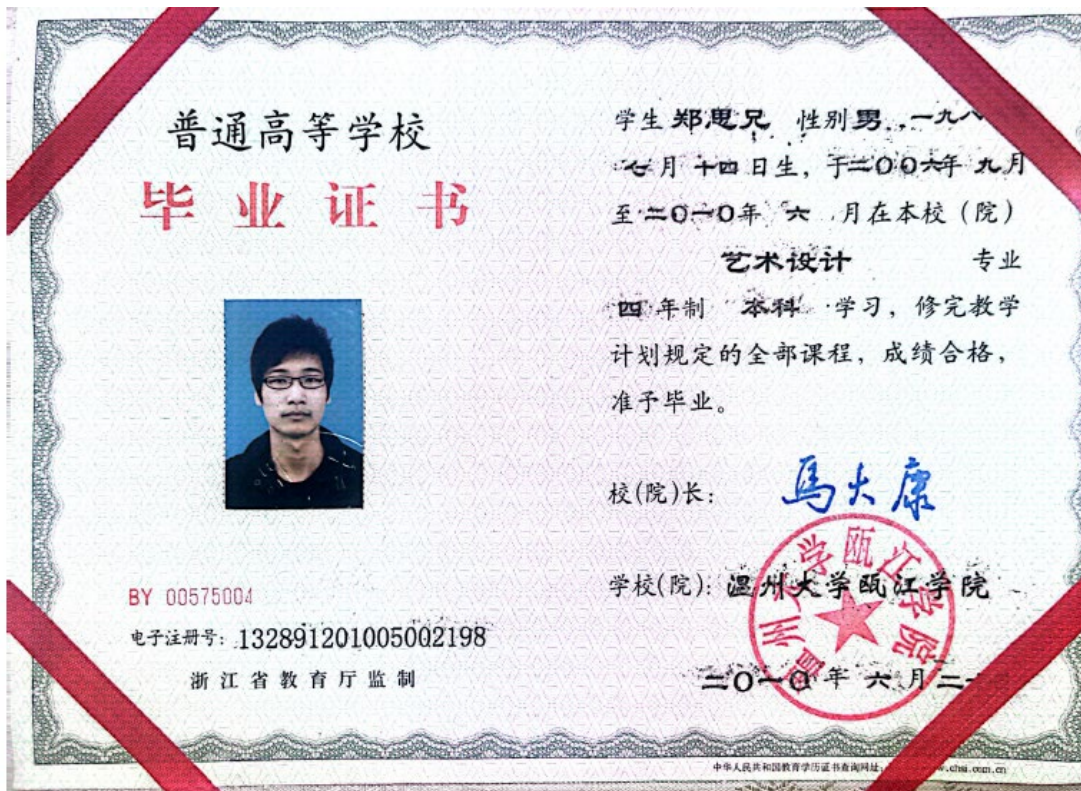 普通高等学校
毕业证书
BY 00575004
电子注册号：132891201005002198
浙江省教育厅监制
学生 郑思兄 性别 男，一九八
七月十四日生，于二〇〇六年九月
至二〇一〇年 六 月在本校（院）
艺术设计 专业
四年制 本科 学习，修完教学
计划规定的全部课程，成绩合格，
准予毕业。
校(院)长： 馬大康
学校(院)：温州大学瓯江学院
温州大学瓯江学院
二〇一〇年 六 月 二十
中华人民共和国教育学历证书查询网址：w.chsi.com.cn